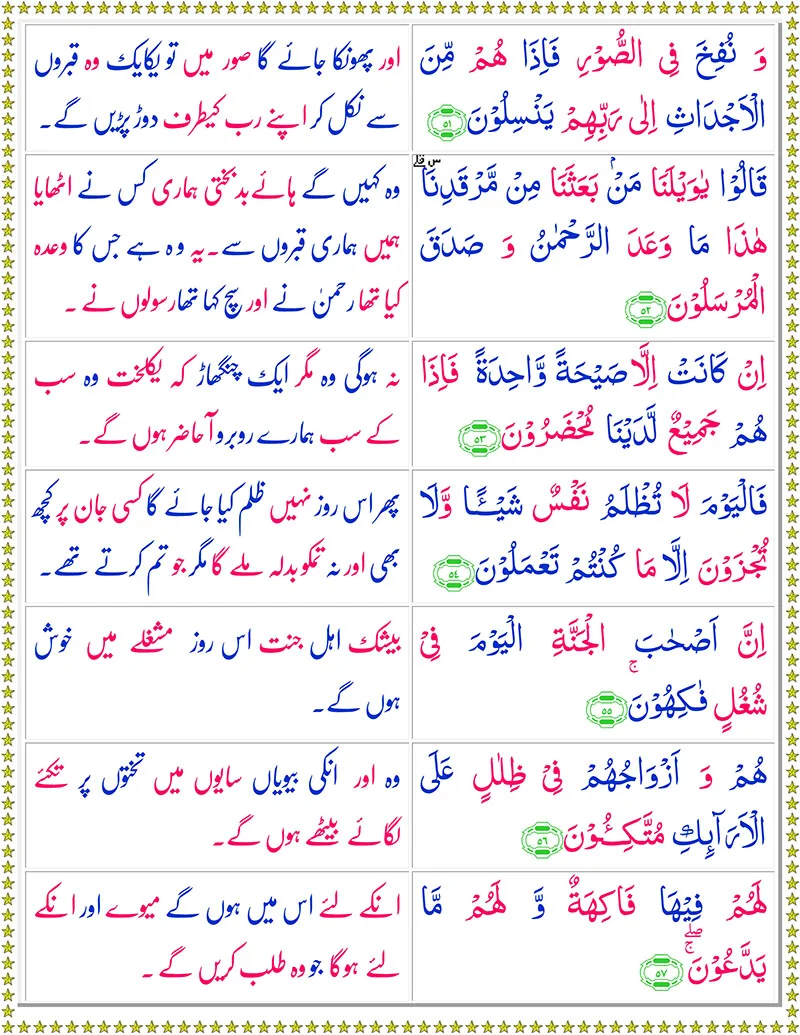 وَ نُفِخَ فِی الصُّوْرِ فَاِذَا هُمْ مِّنَ
الْاَجْدَاثِ اِلٰی رَبِّهِمْ یَنْسِلُوْنَ ۵۱
اور پھونکا جائے گا صور میں تو یکایک وہ قبروں
سے نکل کر اپنے رب کیطرف دوڑ پڑیں گے۔
قَالُوْا یٰوَیْلَنَا مَنْۢ بَعَثَنَا مِنْ مَّرْقَدِنَا
هٰذَا مَا وَعَدَ الرَّحْمٰنُ وَ صَدَقَ
الْمُرْسَلُوْنَ ۵۲
وہ کہیں گے ہائے بدبختی ہماری کس نے اٹھایا
ہمیں ہماری قبروں سے۔ یہ وہ ہے جس کا وعدہ
کیا تھا رحمنٰ نے اور سچ کہا تھا رسولوں نے ۔
اِنْ كَانَتْ اِلَّا صَیْحَةً وَّاحِدَةً فَاِذَا
هُمْ جَمِیْعٌ لَّدَیْنَا مُحْضَرُوْنَ ۵۳
نہ ہوگی وہ مگر ایک چنگھاڑ کہ یکلخت وہ سب
کے سب ہمارے روبرو آحاضر ہوں گے۔
فَالْیَوْمَ لَا تُظْلَمُ نَفْسٌ شَیْـًٔا وَّلَا
تُجْزَوْنَ اِلَّا مَا كُنْتُمْ تَعْمَلُوْنَ ۵۴
پھر اس روز نہیں ظلم کیا جائے گا کسی جان پر کچھ
بھی اور نہ تمکو بدلہ ملے گا مگر جو تم کرتے تھے۔
اِنَّ اَصْحٰبَ الْجَنَّةِ الْیَوْمَ فِیْ
شُغُلٍ فٰكِهُوْنَ ۵۵
بیشک اہل جنت اس روز مشغلے میں خوش
ہوں گے۔
هُمْ وَ اَزْوَاجُهُمْ فِیْ ظِلٰلٍ عَلَی
الْاَرَآىِٕكِ مُتَّكِـُٔوْنَ ۵۶
وہ اور انکی بیویاں سایوں میں تختوں پر تکئے
لگائے بیٹھے ہوں گے۔
لَهُمْ فِیْهَا فَاكِهَةٌ وَّ لَهُمْ مَّا
یَدَّعُوْنَ ۵۷
انکے لئے اس میں ہوں گے میوے اور انکے
لئے ہوگا جو وہ طلب کریں گے ۔